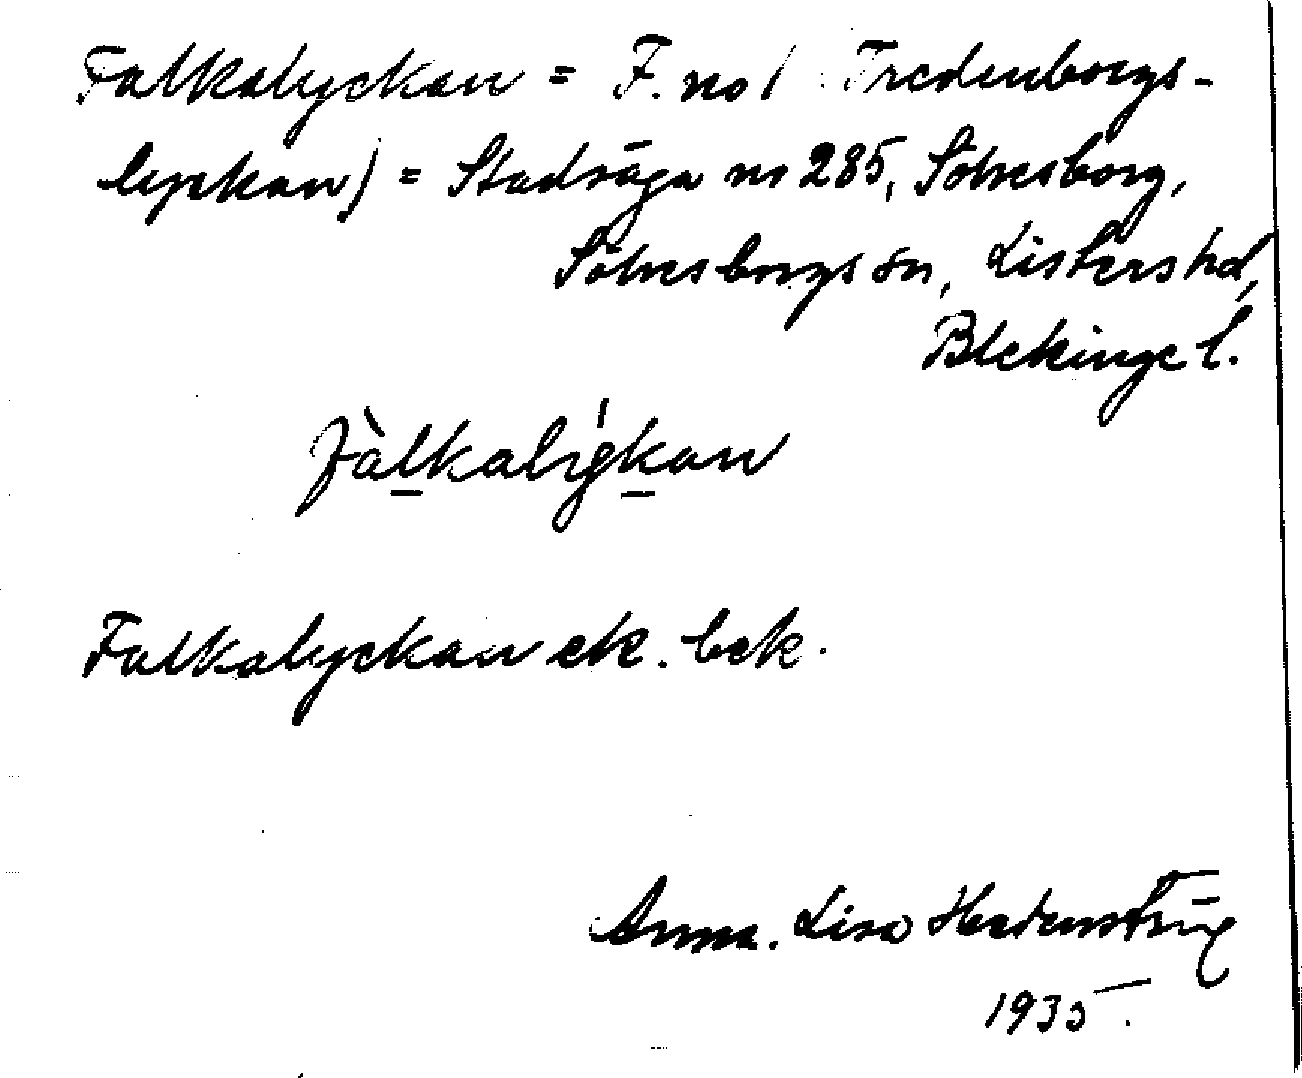 Falkalyckan = F. no 1 Fredenborgs-
lyckan) = Stadsäga nr 285, Sölvesborg,
Sölvesborgs sn, Listers hd,
Blekinge l.
fàlkalýkan
Falkalyckan ek. bek.
Anna-Lisa Hedenström
1935.